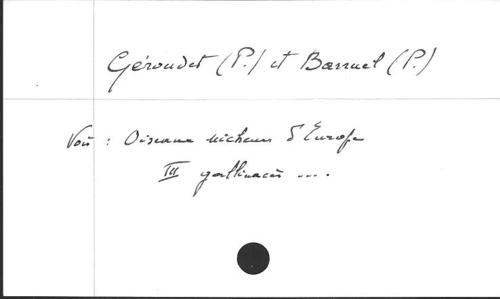 Géroudet (P.) et Barruel (P.)
Voir : Oiseaux nicheurs d'Europe
III gallinacés ....